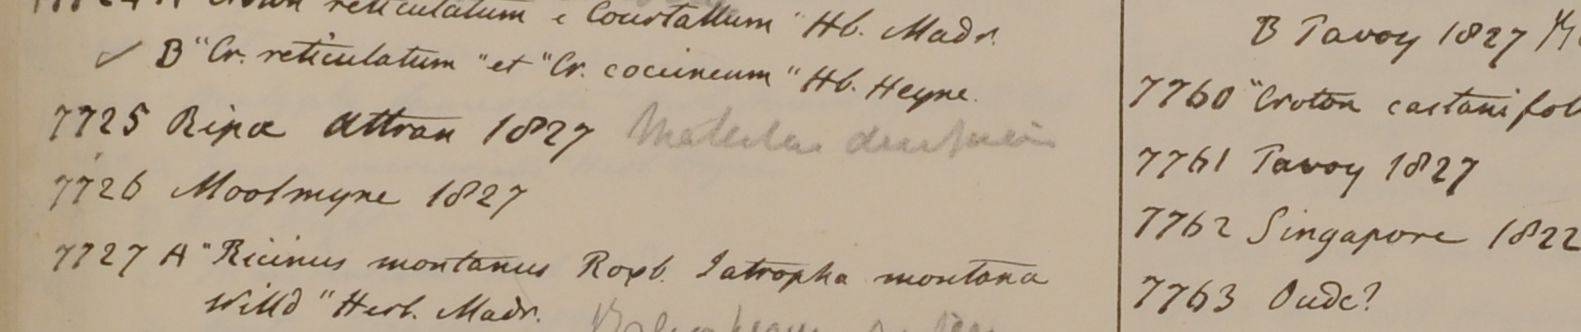 reticulatum e Courtallum" Hb. Madr.
B "Cr. reticulatum" et "Cr. coccineum" Hb. Heyne.
7725 Ripæ Attran 1827
7726 Moolmyne 1827
7727 A "Ricinus montanus Roxb. Jatropha montana
Willd" Herb. Madr.
B Tavoy 1827
7760 "Croton castanifol
7761 Tavoy 1827
7762 Singapore 1822
7763 Oude?